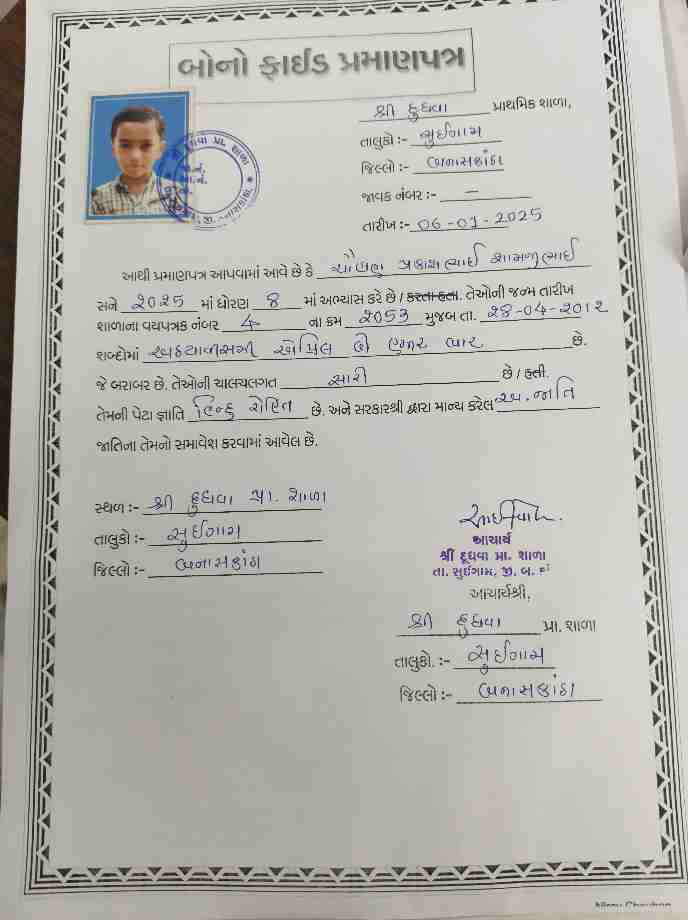 બોનો ફાઈડ પ્રમાણપત્ર
શ્રી દુધવા પ્રાથમિક શાળા,
તાલુકો :- સુઈગામ
જિલ્લો :- બનાસકાંઠા
જાવક નંબર :- —
તારીખ :- 06-01-2025
આથી પ્રમાણપત્ર આપવામાં આવે છે કે ચૌહાણ પ્રકાશભાઈ શામળુભાઈ
સને 2025 માં ધોરણ 8 માં અભ્યાસ કરે છે / કરતા હતા. તેઓની જન્મ તારીખ
શાળાના વયપત્રક નંબર 4 ના ક્રમ 2053 મુજબ તા. 28-04-2012
શબ્દોમાં અઠ્યાવીસમી એપ્રિલ બે હજાર બાર છે.
જે બરાબર છે. તેઓની ચાલચલગત સારી છે / હતી.
તેમની પેટા જ્ઞાતિ હિન્દુ રોહિત છે. અને સરકારશ્રી દ્વારા માન્ય કરેલ અ. જાતિ
જાતિના તેમનો સમાવેશ કરવામાં આવેલ છે.
સ્થળ :- શ્રી દુધવા પ્રા. શાળા
તાલુકો :- સુઈગામ
જિલ્લો :- બનાસકાંઠા
આચાર્ય
શ્રી દૂધવા પ્રા. શાળા
તા. સુઈગામ, જી. બ. કાં
આચાર્યશ્રી,
શ્રી દુધવા પ્રા. શાળા
તાલુકો. :- સુઈગામ
જિલ્લો :- બનાસકાંઠા